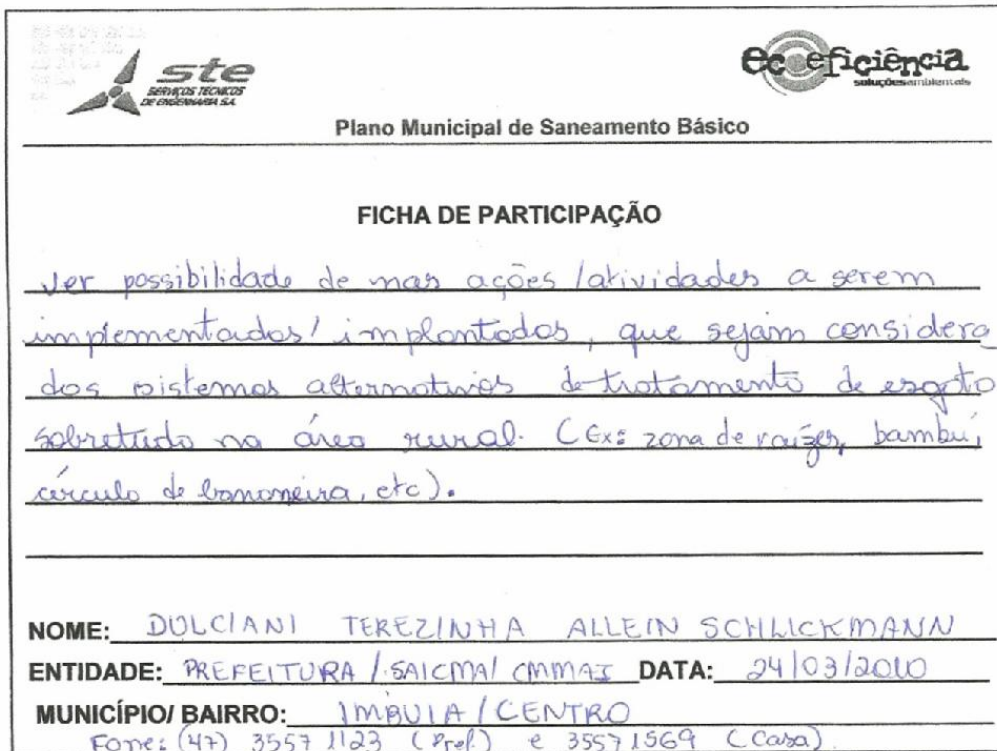 ste
SERVIÇOS TÉCNICOS
DE ENGENHARIA S.A.
eco eficiência
soluçõesambientais
Plano Municipal de Saneamento Básico
FICHA DE PARTICIPAÇÃO
Ver possibilidade de mas ações/atividades a serem
implementadas/implantadas, que sejam considera
dos sistemas alternativos de tratamento de esgoto
sobretudo na área rural. (Ex: zona de raízes, bambú,
círculo de bananeira, etc).
NOME: DULCIANI TEREZINHA ALLEIN SCHLICKMANN
ENTIDADE: PREFEITURA / SAICMA/ CMMAI DATA: 24/03/2010
MUNICÍPIO/ BAIRRO: IMBUIA / CENTRO
Fone: (47) 3557 1123 (Pref.) e 3557 1569 (Casa)